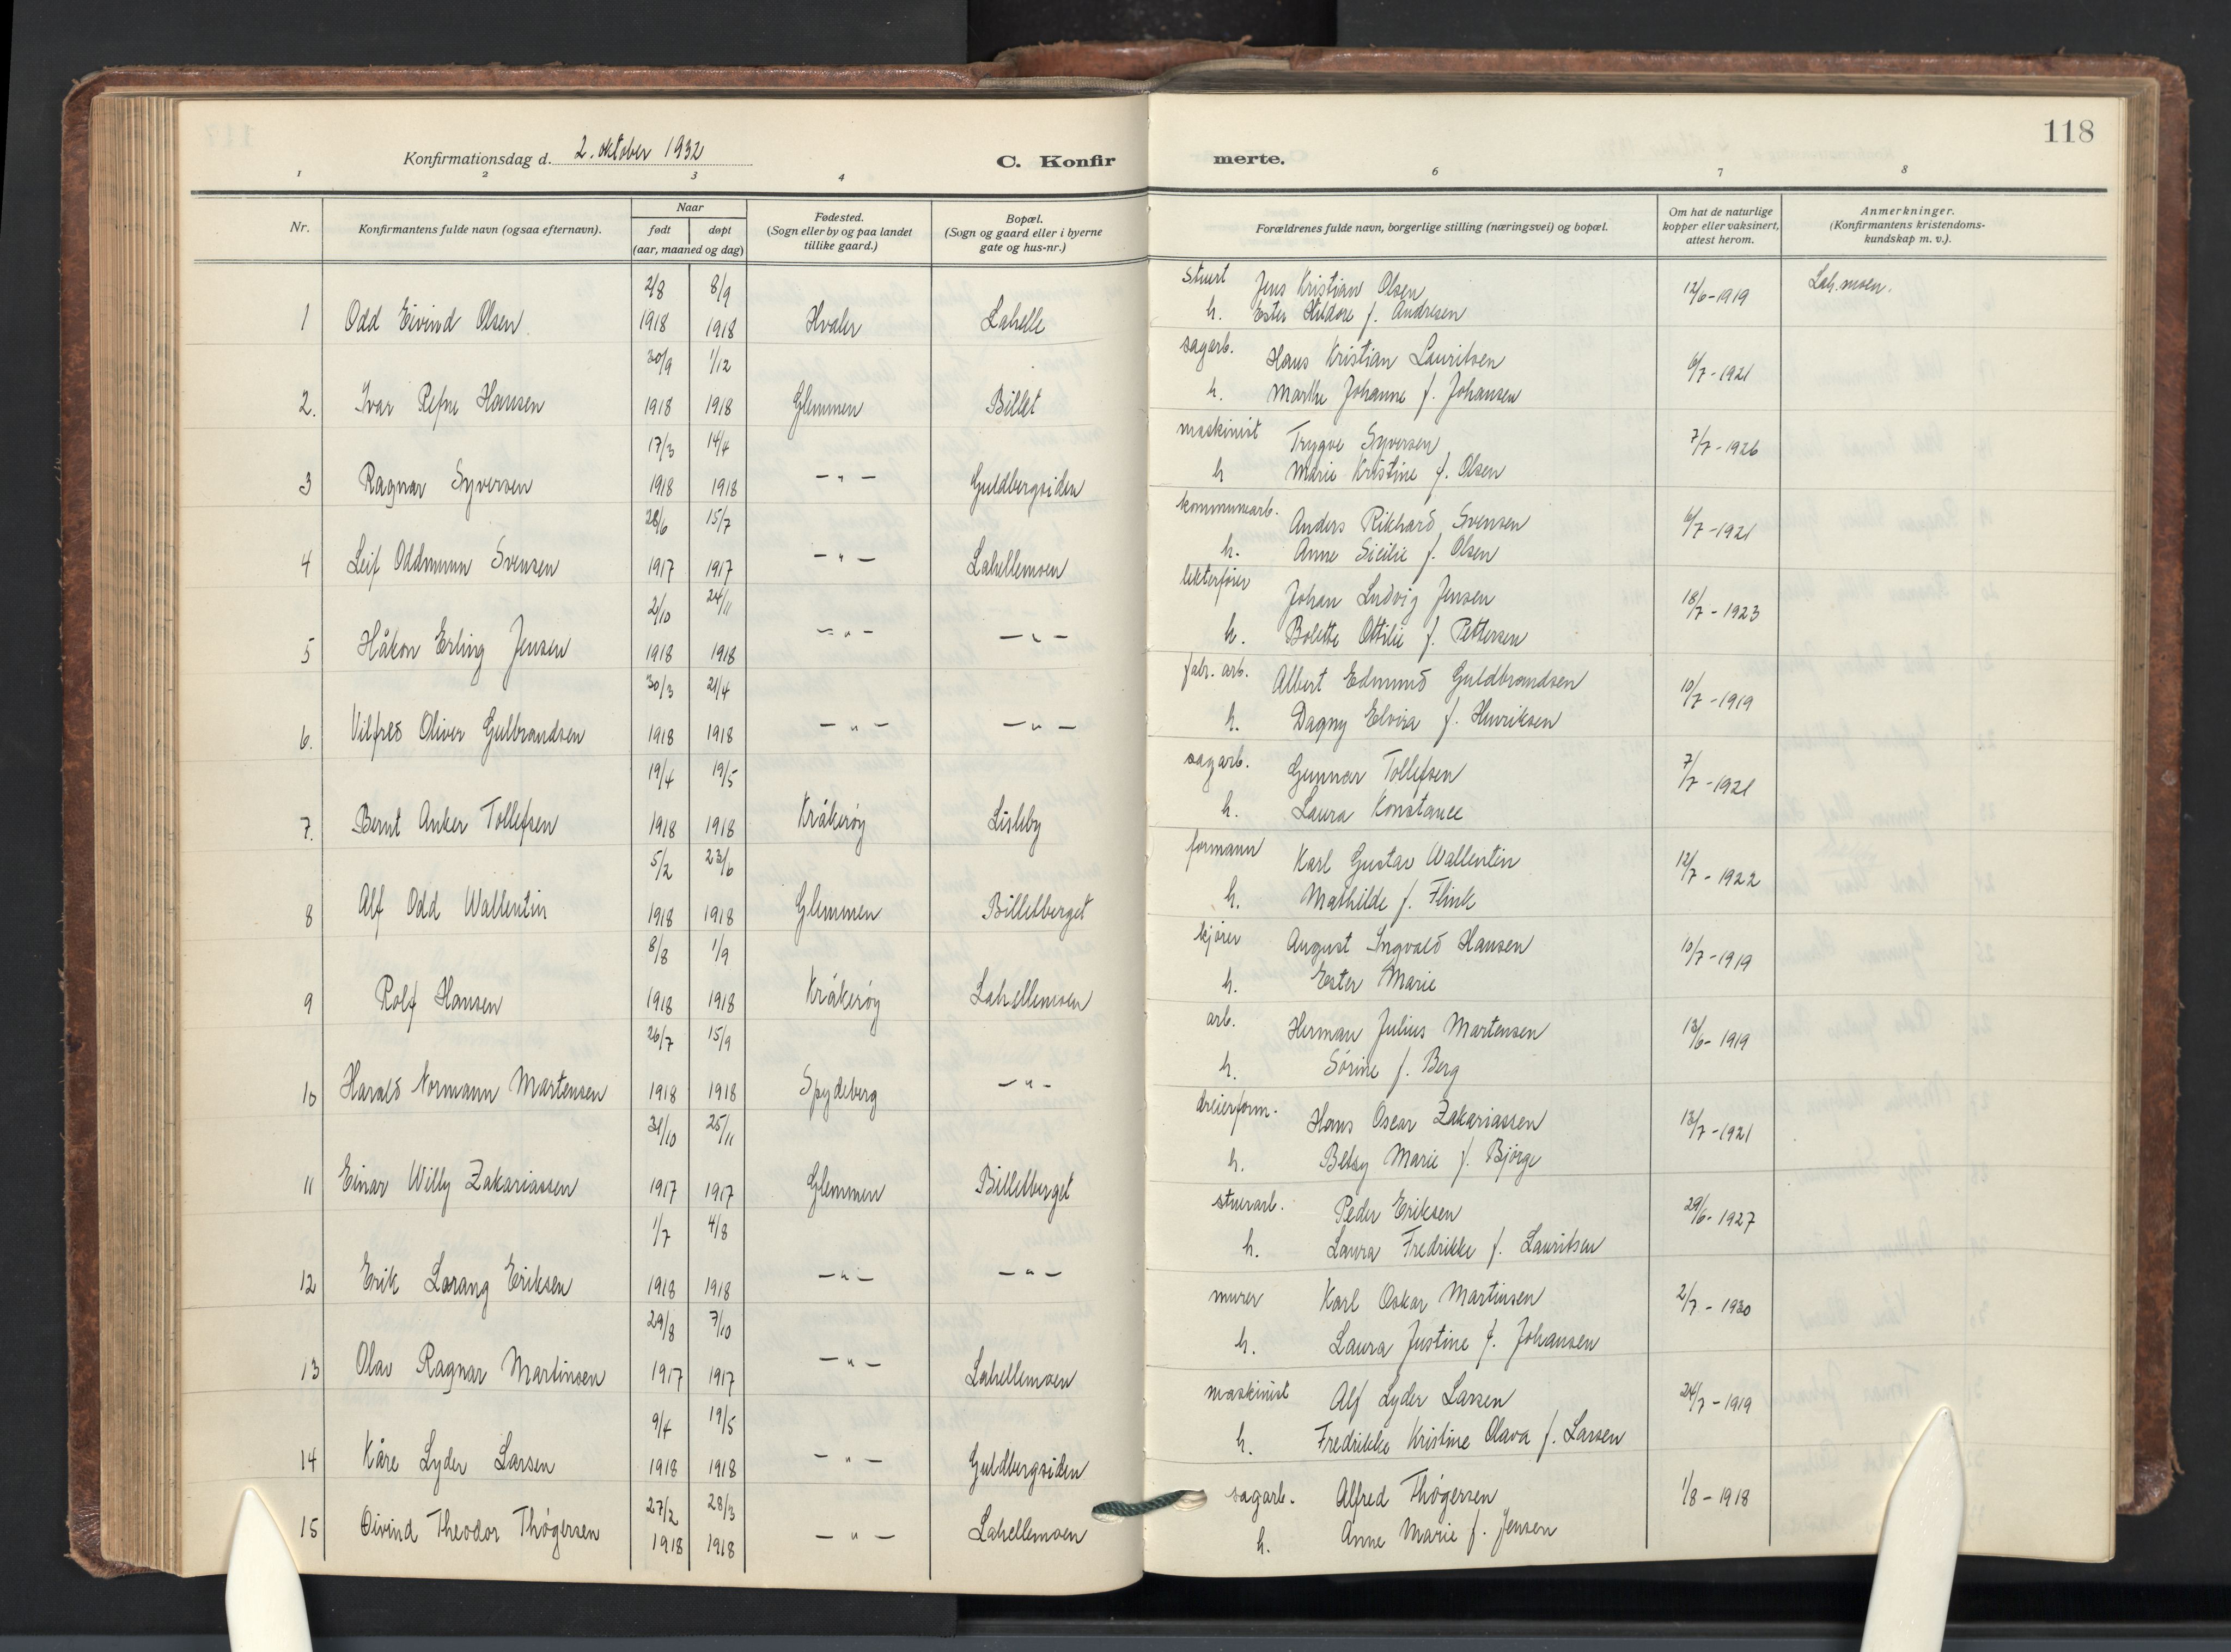 118
Konfirmationsdag d. 2. oktober 1932
C. Konfirmerte.
1 2 3 4 6 7 8
Nr. Konfirmantens fulde navn (ogsaa efternavn). Naar født døpt (aar, maaned og dag) Fødested. (Sogn eller by og paa landet tillike gaard.) Bopæl. (Sogn og gaard eller i byerne gate og hus-nr.) Forældrenes fulde navn, borgerlige stilling (næringsvei) og bopæl. Om hat de naturlige kopper eller vaksinert, attest herom. Anmerkninger. (Konfirmantens kristendoms-kundskap m. v.).
1 Odd Eivind Olsen 2/8 1918 8/9 1918 Hvaler Lahelle stuert Jens Kristian Olsen 12/6-1919 Lah.moen.
h. Ester Hildore f. Andresen
2. Ivar Refne Hansen 30/9 1918 1/12 1918 Glemmen Billet sagarb. Hans Kristian Lauritsen 6/7-1921
h. Marthe Johanne f. Johansen
3 Ragnar Syversen 17/3 1918 14/4 1918 - " - Guldbergsiden maskinist Trygve Syversen 7/7-1926
h Marie Kristine f. Olsen
4 Leif Oddmunn Svensen 28/6 1917 15/7 1917 - " - Lahellemoen kommunearb. Anders Rikhard Svensen 6/7-1921
h. Anne Sicilie f. Olsen
5 Håkon Erling Jensen 2/10 1918 24/11 1918 - " - - " - lekterfører Johan Ludvig Jensen 18/7-1923
h. Bolette Ottilie f. Pettersen
6. Vilfred Oliver Gulbrandsen 30/3 1918 21/4 1918 - " - - " - fabr. arb. Albert Edmund Guldbrandsen 10/7-1919
h. Dagny Elvira f. Henriksen
7. Bernt Anker Tollefsen 19/4 1918 19/5 1918 Kråkerøy Lisleby sagarb. Gunnar Tollefsen 7/7-1921
h. Laura Konstance
8 Alf Odd Wallentin 5/2 1918 23/6 1918 Glemmen Billetberget formann Karl Gustav Wallentin 12/7-1922
h. Mathilde f. Flink
9 Rolf Hansen 8/8 1918 1/9 1918 Kråkerøy Lahellemoen kjører August Ingvald Hansen 10/7-1919
h. Ester Marie
10 Harald Normann Martensen 26/7 1918 15/9 1918 Spydeberg - " - arb. Herman Julius Martensen 13/6-1919
h. Sørine f. Berg
11 Einar Willy Zakariassen 31/10 1917 25/11 1917 Glemmen Billetberget dreierform. Hans Oscar Zakariassen 13/7-1921
h. Betsy Marie f. Bjørge
12 Erik Lorang Eriksen 1/7 1918 4/8 1918 - " - - " - stuerarb. Peder Eriksen 29/6-1927
h. Laura Fredrikke f. Lauritsen
13 Olav Ragnar Martinsen 29/8 1917 7/10 1917 - " - Lahellemoen murer Karl Oskar Martinsen 2/7-1930
h. Laura Justine f. Johansen
14 Kåre Lyder Larsen 9/4 1918 19/5 1918 - " - Guldbergsiden maskinist Alf Lyder Larsen 24/7-1919
h. Fredrikke Kristine Olava f. Larsen
15 Øivind Theodor Thøgersen 27/2 1918 28/3 1918 - " - Lahellemoen sagarb. Alfred Thøgersen 1/8-1918
h. Anne Marie f. Jensen